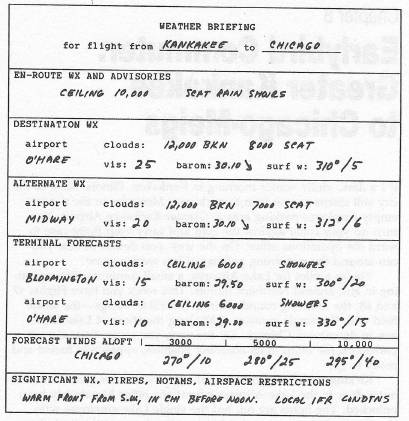 WEATHER BRIEFING
for flight from KANKAKEE to CHICAGO
EN-ROUTE WX AND ADVISORIES
CEILING 10,000 SCAT RAIN SHOURS
DESTINATION WX
airport clouds: 12,000 BKN 8000 SCAT
O'HARE vis: 25 barom: 30.10 ↘ surf w: 310°/5
ALTERNATE WX
airport clouds: 12,000 BKN 7000 SCAT
MIDWAY vis: 20 barom: 30.10 ↘ surf w: 312°/6
TERMINAL FORECASTS
airport clouds: CEILING 6000 SHOWERS
BLOOMINGTON vis: 15 barom: 29.50 surf w: 300°/20
airport clouds: CEILING 6000 SHOWERS
O'HARE vis: 10 barom: 29.00 surf w: 330°/15
FORECAST WINDS ALOFT | 3000 | 5000 | 10,000
CHICAGO 270°/10 280°/25 295°/40
SIGNIFICANT WX, PIREPS, NOTAMS, AIRSPACE RESTRICTIONS
WARM FRONT FROM S.W, IN CHI BEFORE NOON. LOCAL IFR CONDTNS